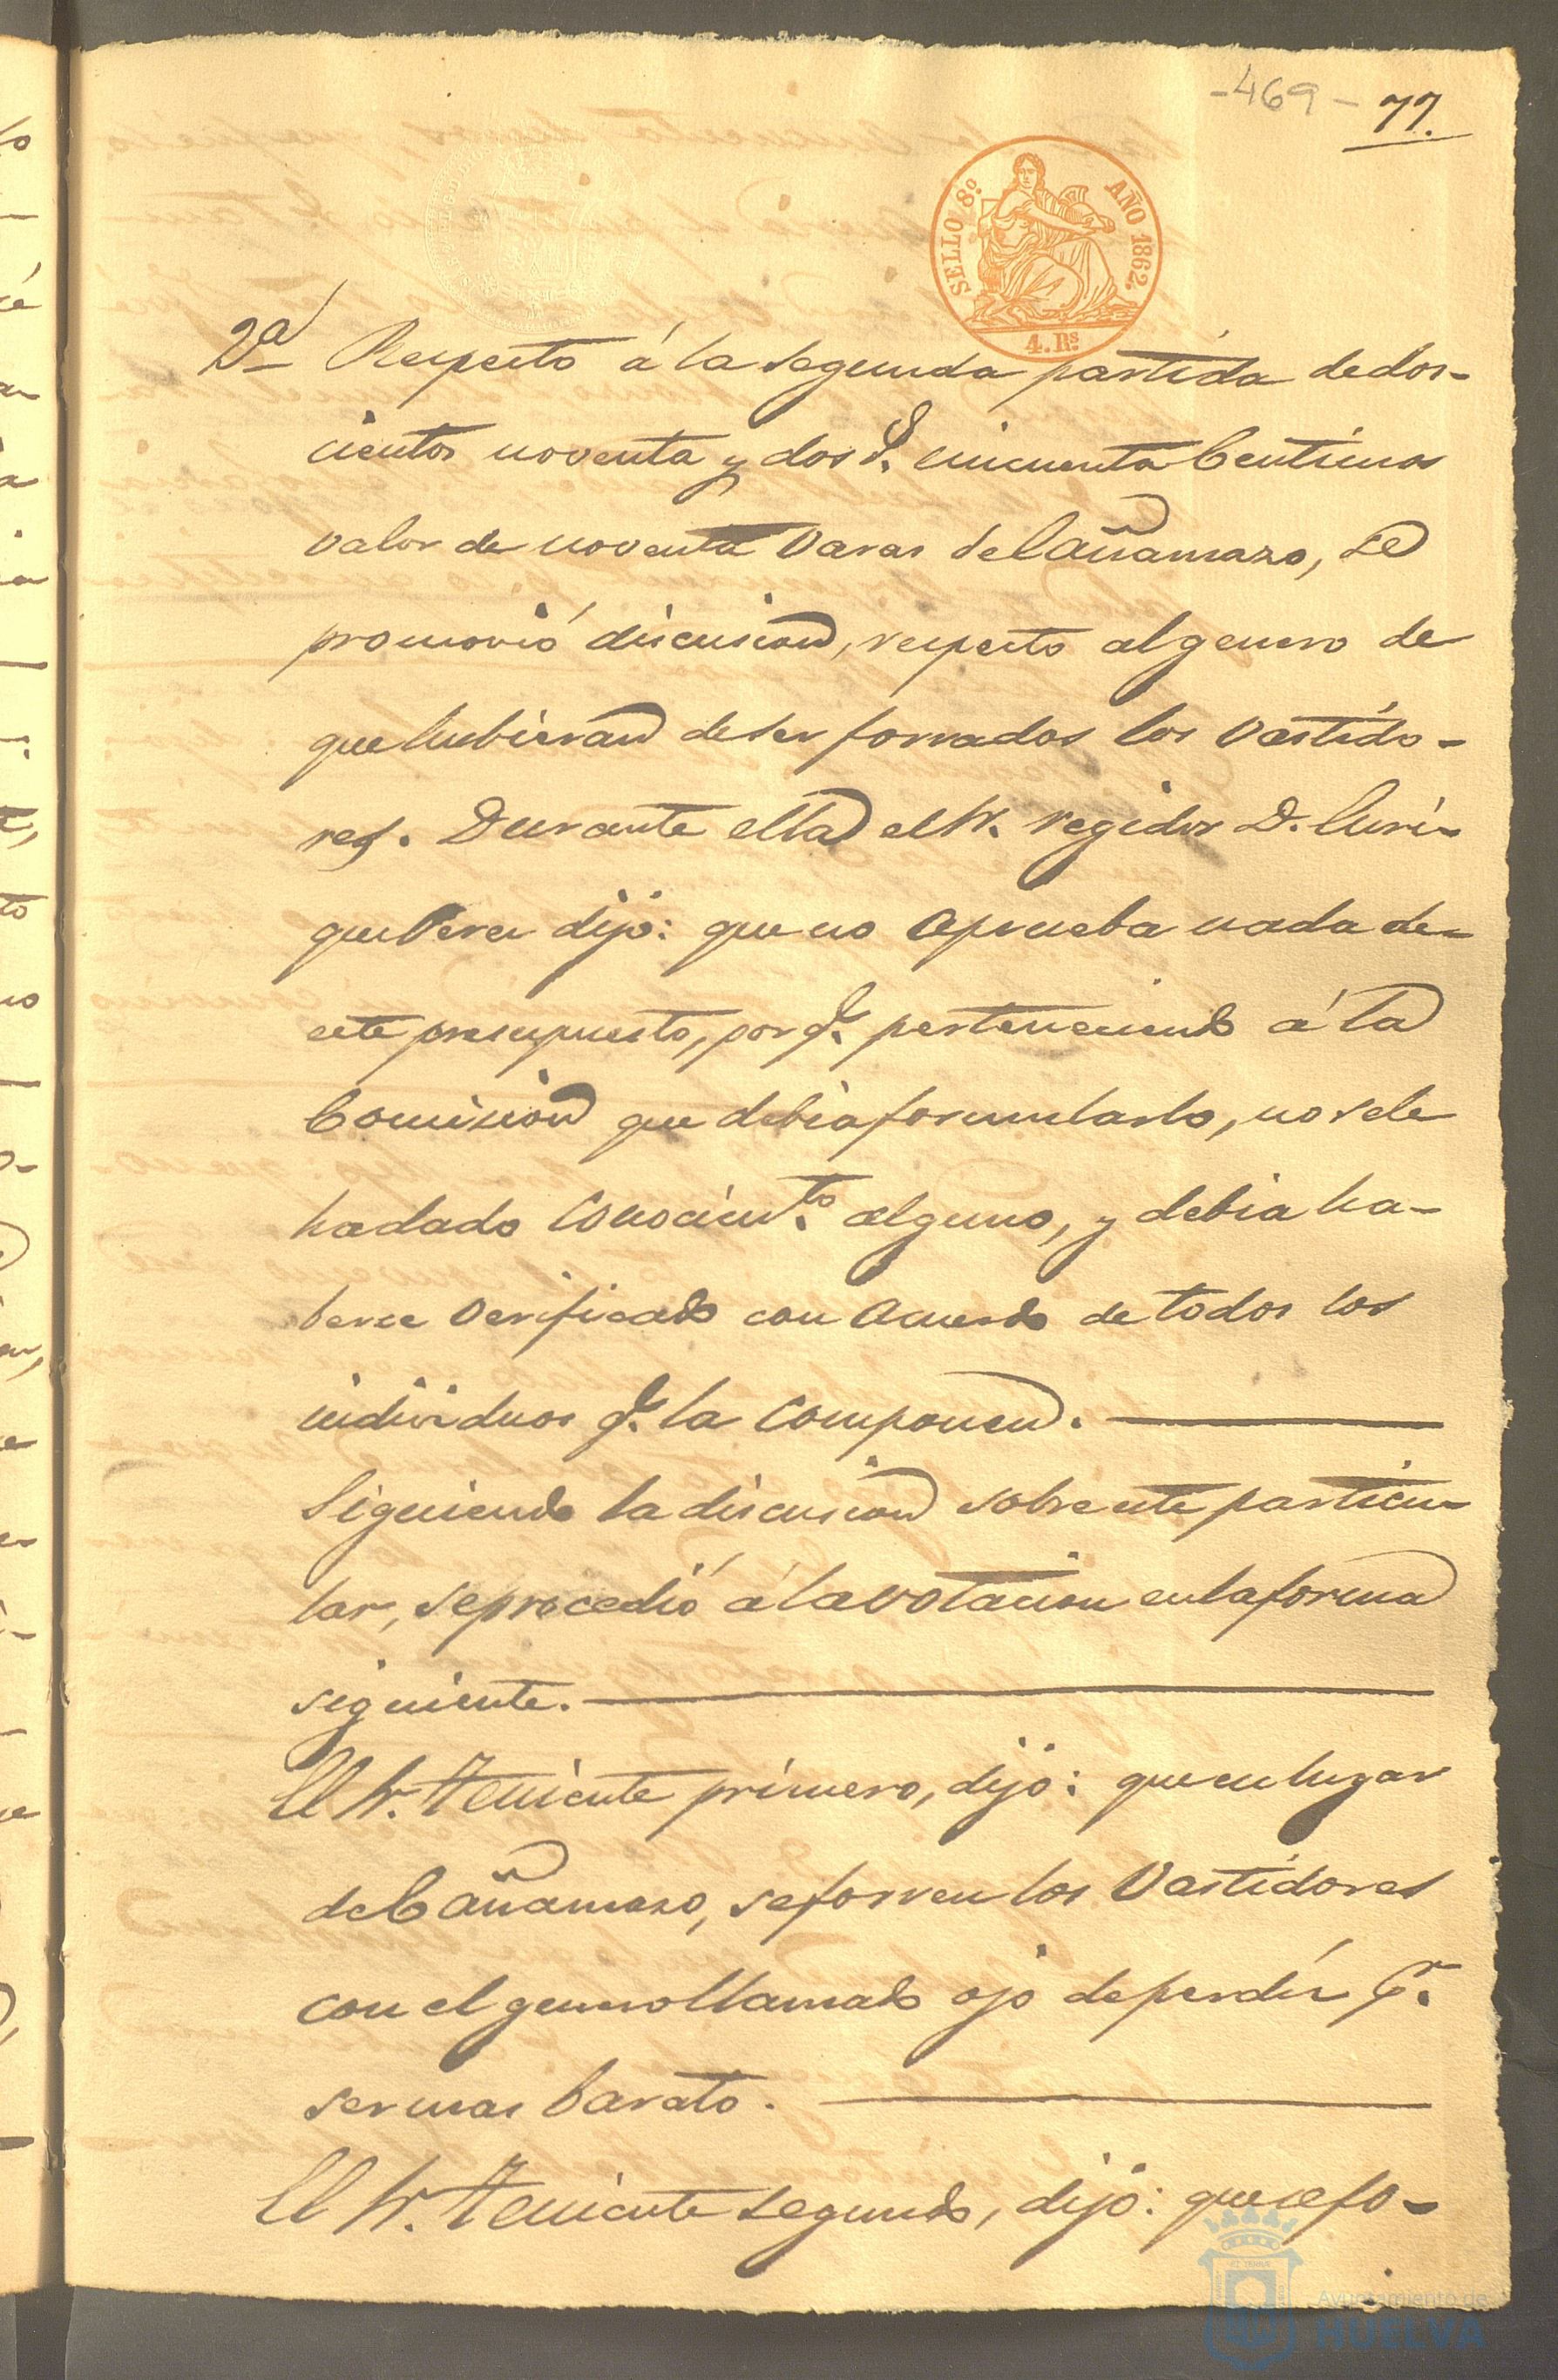 -469- 77.
SELLO 8º. AÑO 1862.
4. Rs.
2ª Respecto á la segunda partida de dos-
cientos noventa y dos r. cincuenta Centimos
valor de noventa varas de Cañamazo, se
promovió discusion, respecto al genero de
que hubieran de ser forrados los vastido-
res. Durante ella el Sr. regidor D. Enri-
que Perez dijo: que no aprueba nada de
este presupuesto, por q.e perteneciendo á la
Comision que debia formularlo, no se le
ha dado conocim.to alguno, y debia ha-
berse verificado con acuerdo de todos los
individuos q.e la componen.
Siguiendo la discusion sobre este particu-
lar, se procedió á la votacion en la forma
siguiente.
El Sr. Teniente primero, dijo: que en lugar
de Cañamazo, se forren los Vastidores
con el genero llamado ojo de perdiz p.r
ser mas barato.
El Sr. Teniente segundo, dijo: que se fo-
Ayuntamiento de
HUELVA